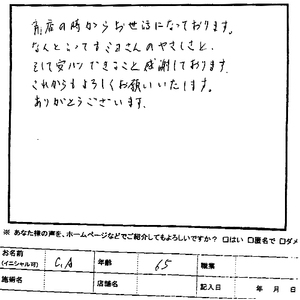 前店の時からお世話になっております。
なんといっても
さんのやさしさと、
そして安
できること感謝しております。
これからもよろしくお願いいたします。
ありがとうございます。
※ あなた様の声を、ホームページなどでご紹介してもよろしいですか? □はい □匿名で □ダメ
お名前
(イニシャル可)
C.A
年齢
65
職業
施術名
店舗名
記入日
年 月 日